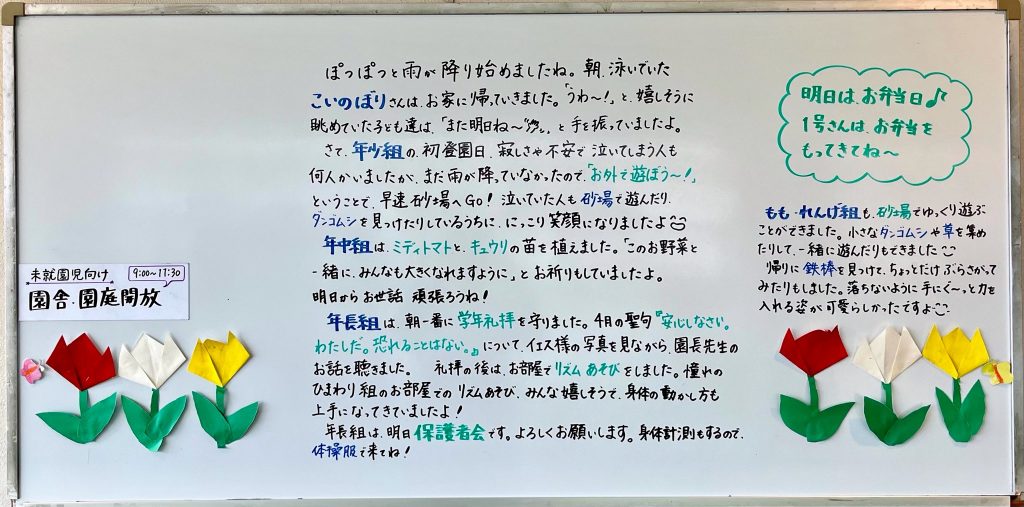 ぽつぽつと雨が降り始めましたね。朝、泳いでいた
こいのぼりさんは、お家に帰っていきました。「うわ〜!」と、嬉しそうに
眺めていた子ども達は、「また明日ね〜」と手を振っていましたよ。
さて、年少組の、初登園日、寂しさや不安で泣いてしまう人も
何人かいましたが、まだ雨が降っていなかったので、「お外で遊ぼう〜!」
ということで、早速砂場へGo! 泣いていた人も砂場で遊んだり、
ダンゴムシを見つけたりしているうちに、にっこり笑顔になりましたよ
年中組は、ミディトマトと、キュウリの苗を植えました。「このお野菜と
一緒に、みんなも大きくなれますように」とお祈りもしていましたよ。
明日からお世話頑張ろうね!
年長組は、朝一番に学年礼拝を守りました。4月の聖句『安心しなさい。
わたしだ。恐れることはない。』について、イエス様の写真を見ながら、園長先生の
お話を聴きました。 礼拝の後は、お部屋でリズムあそびをしました。憧れの
ひまわり組のお部屋でのリズムあそび、みんな嬉しそうで、身体の動かし方も
上手になってきていましたよ!
年長組は、明日保護者会です。よろしくお願いします。身体計測もするので、
体操服で来てね!
未就園児向け 9:00〜11:30
園舎・園庭開放
明日は、お弁当日♪
1号さんは、お弁当を
もってきてね〜
もも・れんげ組も、砂場でゆっくり遊ぶ
ことができました。小さなダンゴムシや草を集め
たりして、一緒に遊んだりもできました
帰りに鉄棒を見つけて、ちょっとだけぶらさがって
みたりもしました。落ちないように手にぐ〜っと力を
入れる姿が可愛らしかったですよ